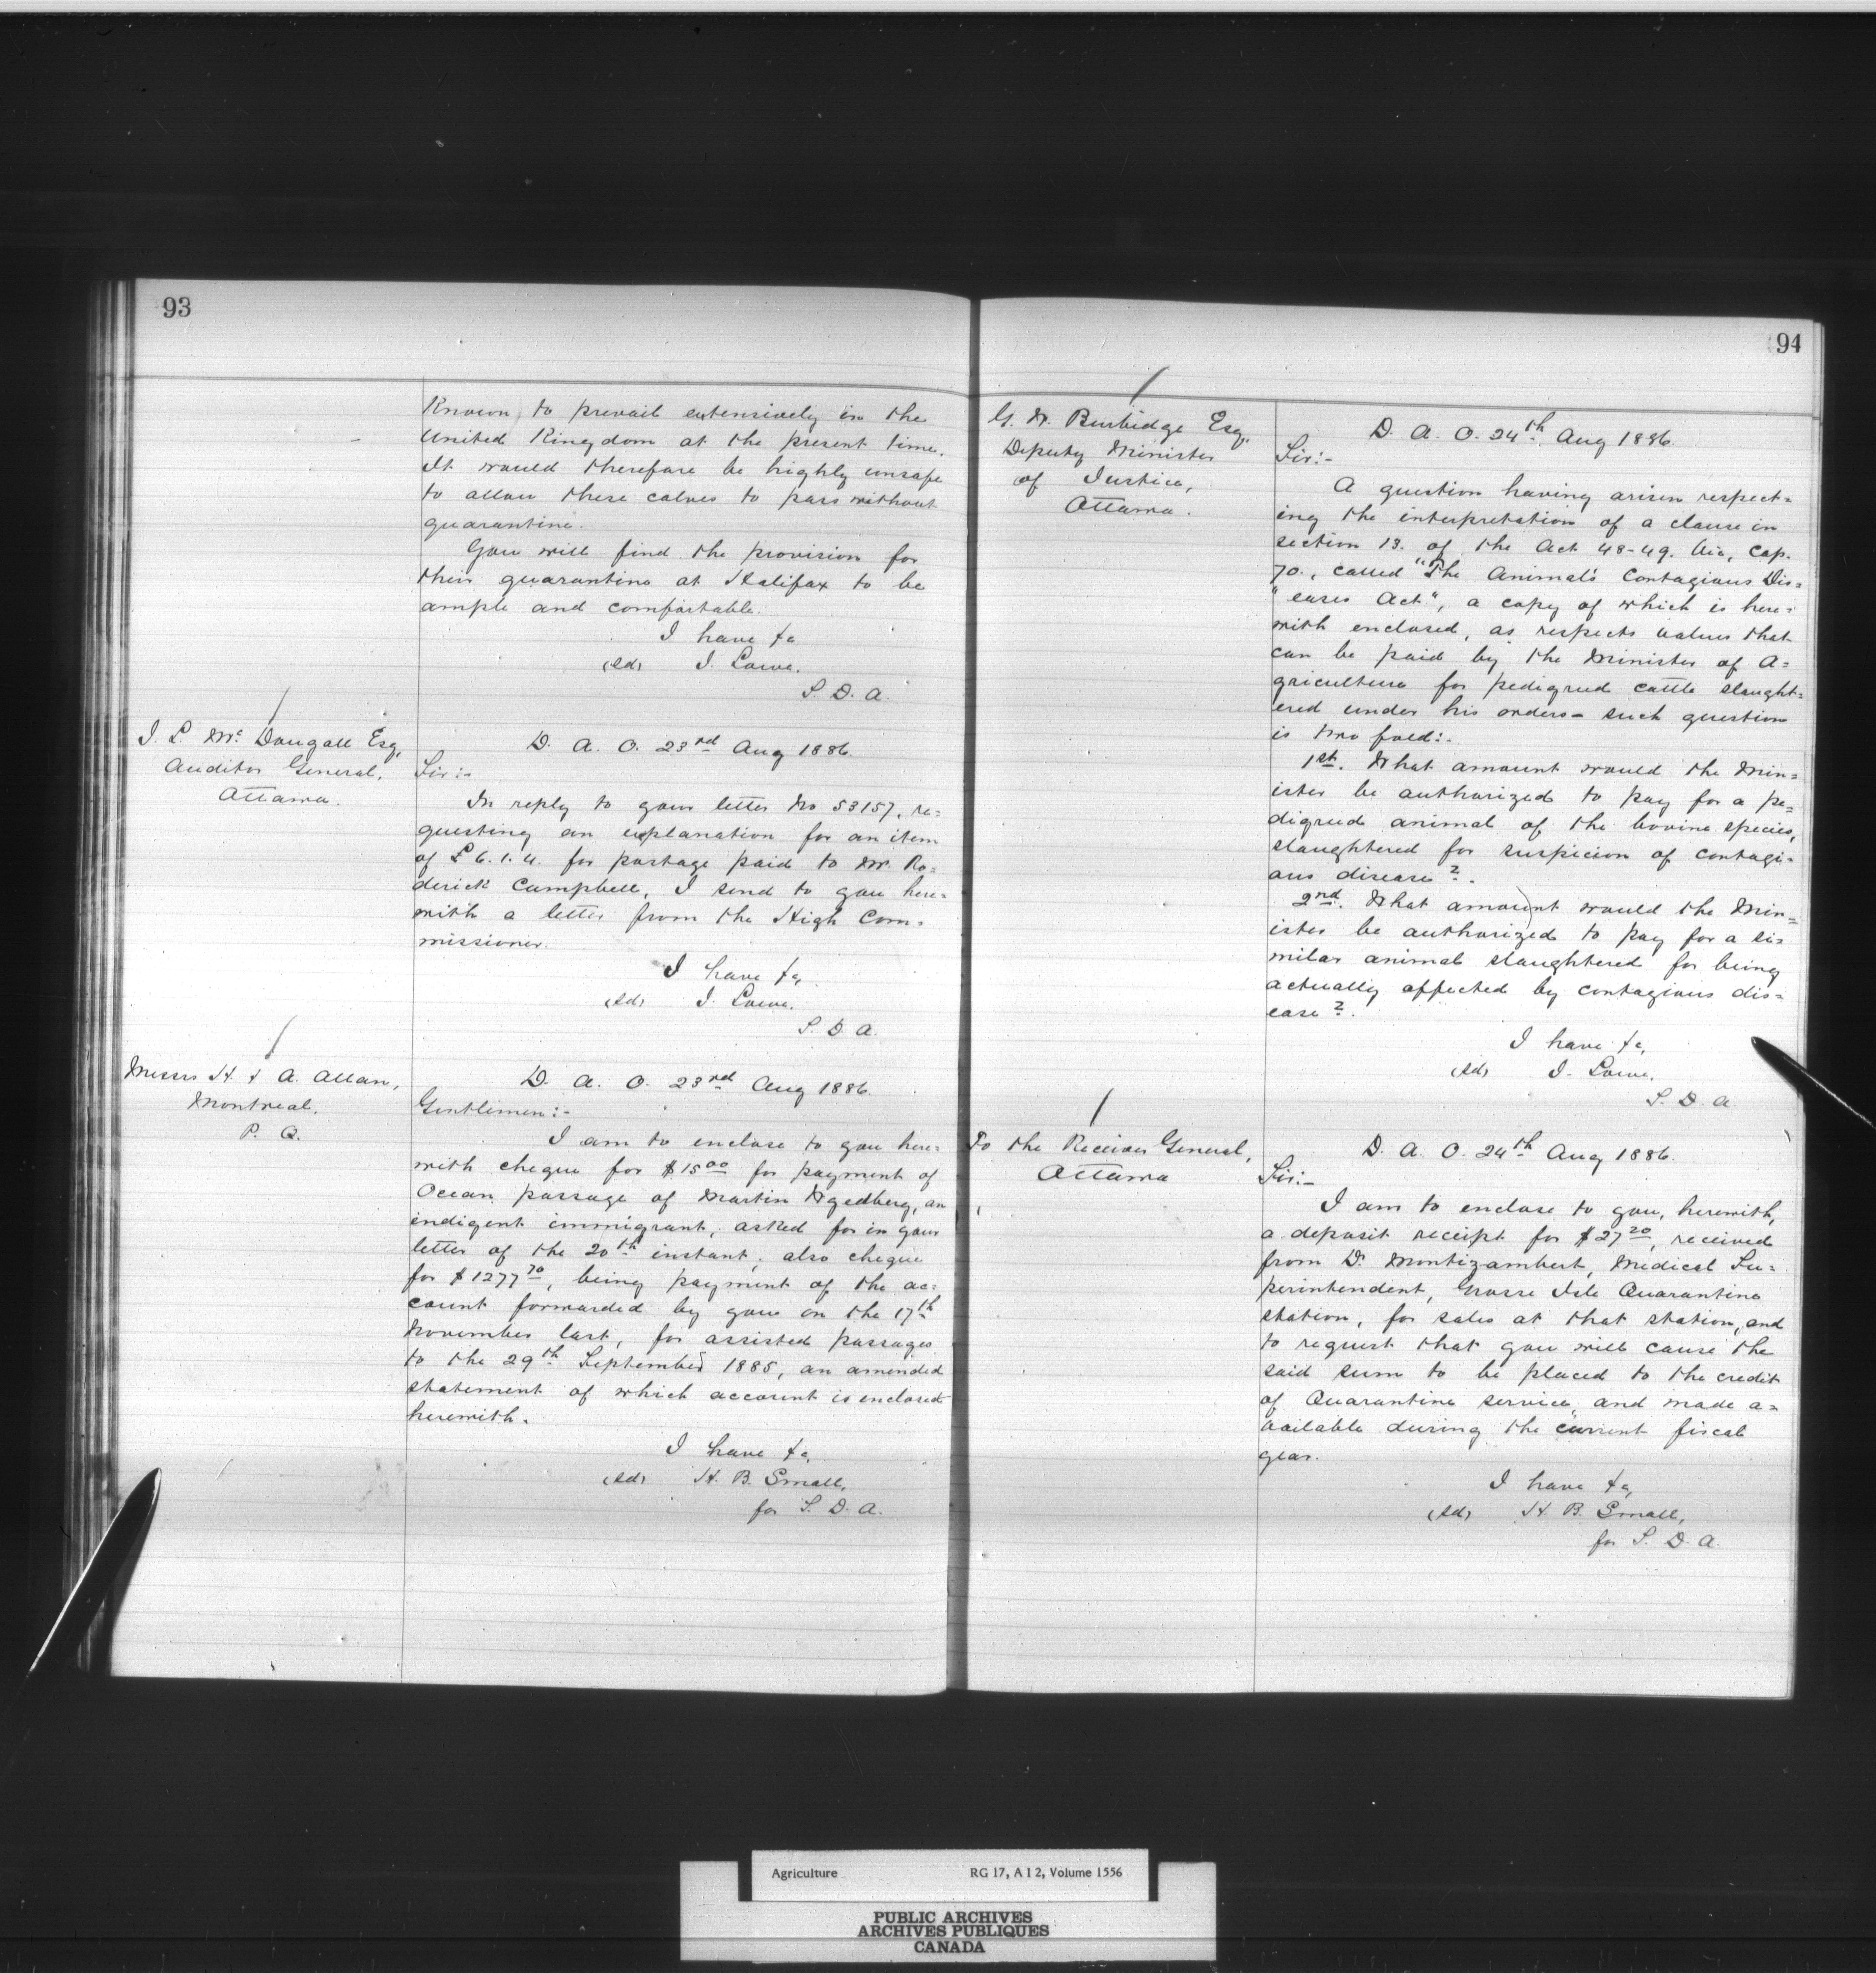 93
Known to prevail extensively in the
United Kingdom at the present time.
It would therefore be highly unsafe
to allow these calves to pass without
quarantine.
You will find the provision for
their quarantine at Halifax to be
ample and comfortable.
I have &c
(sd) J. Lowe.
S. D. A.
J. L. Mc Dougall Esq,
Auditor General,
Ottawa.
D. A. O. 23rd Aug 1886.
Sir:-
In reply to your letter No 53157, re=
questing an explanation for an item
of £6.1.4. for postage paid to Mr. Ro=
derick Campbell, I send to you here=
with a letter from the High Com=
missioner.
I have &c,
(sd) J. Lowe.
S. D. A.
Messrs H. & A. Allan,
Montreal.
P. Q.
D. A. O. 23rd Aug 1886.
Gentlemen:-
I am to enclose to you here=
with cheque for $15 00 for payment of
Ocean passage of Martin, an
indigent immigrant, asked for in your
letter of the 20th instant; also cheque
for $1277 70, being payment of the ac=
count forwarded by you on the 17th
November last, for assisted passages
to the 29th September 1885, an amended
statement of which account is enclosed
herewith.
I have &c,
(sd) H. B. Small,
for S. D. A.
94
G. W. Burbidge Esq,
Deputy Minister
of Justice,
Ottawa.
D. A. O. 24th Aug 1886.
Sir:-
A question having arisen respect=
ing the interpretation of a clause in
section 13. of the Act 48-49. Vic, Cap.
70., called "The Animal's Contagious Dis=
"eases Act", a copy of which is here=
with enclosed, as respects values that
can be paid by the Minister of A=
griculture for pedigreed cattle slaught=
ered under his orders - such question
is two fold:-
1st. What amount would the Min=
ister be authorized to pay for a pe=
digreed animal of the bovine species,
slaughtered for suspicion of contagi=
ous disease?.
2nd. What amount would the Min=
ister be authorized to pay for a si=
milar animal slaughtered for being
actually affected by contagious dis=
ease?.
I have &c,
(sd) J. Lowe.
S. D. A.
To the Receiver General,
Ottawa
D. A. O. 24th Aug 1886.
Sir:-
I am to enclose to you, herewith,
a deposit receipt for $27 20, received
from Dr Montizambert, Medical Su=
perintendent, Grosse Isle Quarantine
station, for sales at that station, and
to request that you will cause the
said sum to be placed to the credit
of Quarantine service, and made a=
vailable during the current fiscal
year.
I have &c,
(sd) H. B. Small,
for S. D. A.
Agriculture RG 17, A I 2, Volume 1556
PUBLIC ARCHIVES
ARCHIVES PUBLIQUES
CANADA